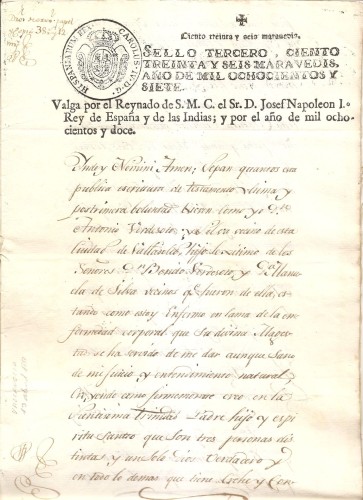 HISPANIARUM REX
CAROLUS IV D G
Ciento treinta y seis maravedis.
SELLO TERCERO, CIENTO
TREINTA Y SEIS MARAVEDIS,
AÑO DE MIL OCHOCIENTOS Y
SIETE.
Valga por el Reynado de S. M. C. el Sr. D. Josef Napoleon I.º
Rey de España y de las Indias; y por el año de mil ocho-
cientos y doce.
Amen; Sepan quantos esta
publica escritura de testamento ultima y
postrimera voluntad vieren como yo Dn
Antonio Verdesoto y Silva vecino de esta
Ciudad de Valladolid, hijo lexitimo de los
Señores Dn Benito Verdesoto, y Da Manu-
ela de Silva vecinos qe fueron de ella, es-
tando como estoy enfermo en cama de la en-
fermedad corporal que Su divina Mages-
tad se ha servido de me dar aunque sano
de mi juicio y entendimiento natural,
Creyendo como firmemente creo en la
Santisima trinidad Padre hijo y espi-
ritu Santo que son tres personas dis-
tintas y un solo Dios verdadero y
en todo lo demas que tiene cree y Con-